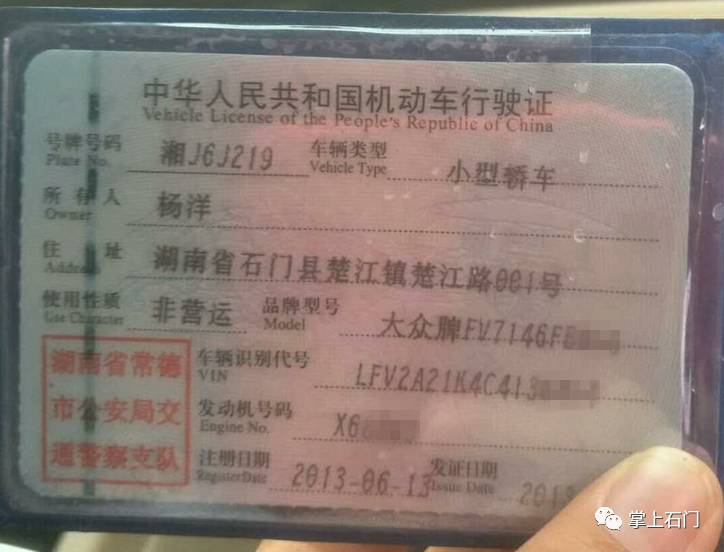 中华人民共和国机动车行驶证
Vehicle License of the People's Republic of China
号牌号码 湘J6J219 车辆类型 小型轿车
Plate No. Vehicle Type
所有人 杨洋
Owner
住址 湖南省石门县楚江镇楚江路001号
Address
使用性质 非营运 品牌型号 大众牌FV7146FB
Use Character Model
湖南省常德
市公安局交
通警察支队
车辆识别代号 LFV2A21K4C413
VIN
发动机号码 X6
Engine No.
注册日期 2013-06-13 发证日期 2013
Register Date Issue Date
掌上石门